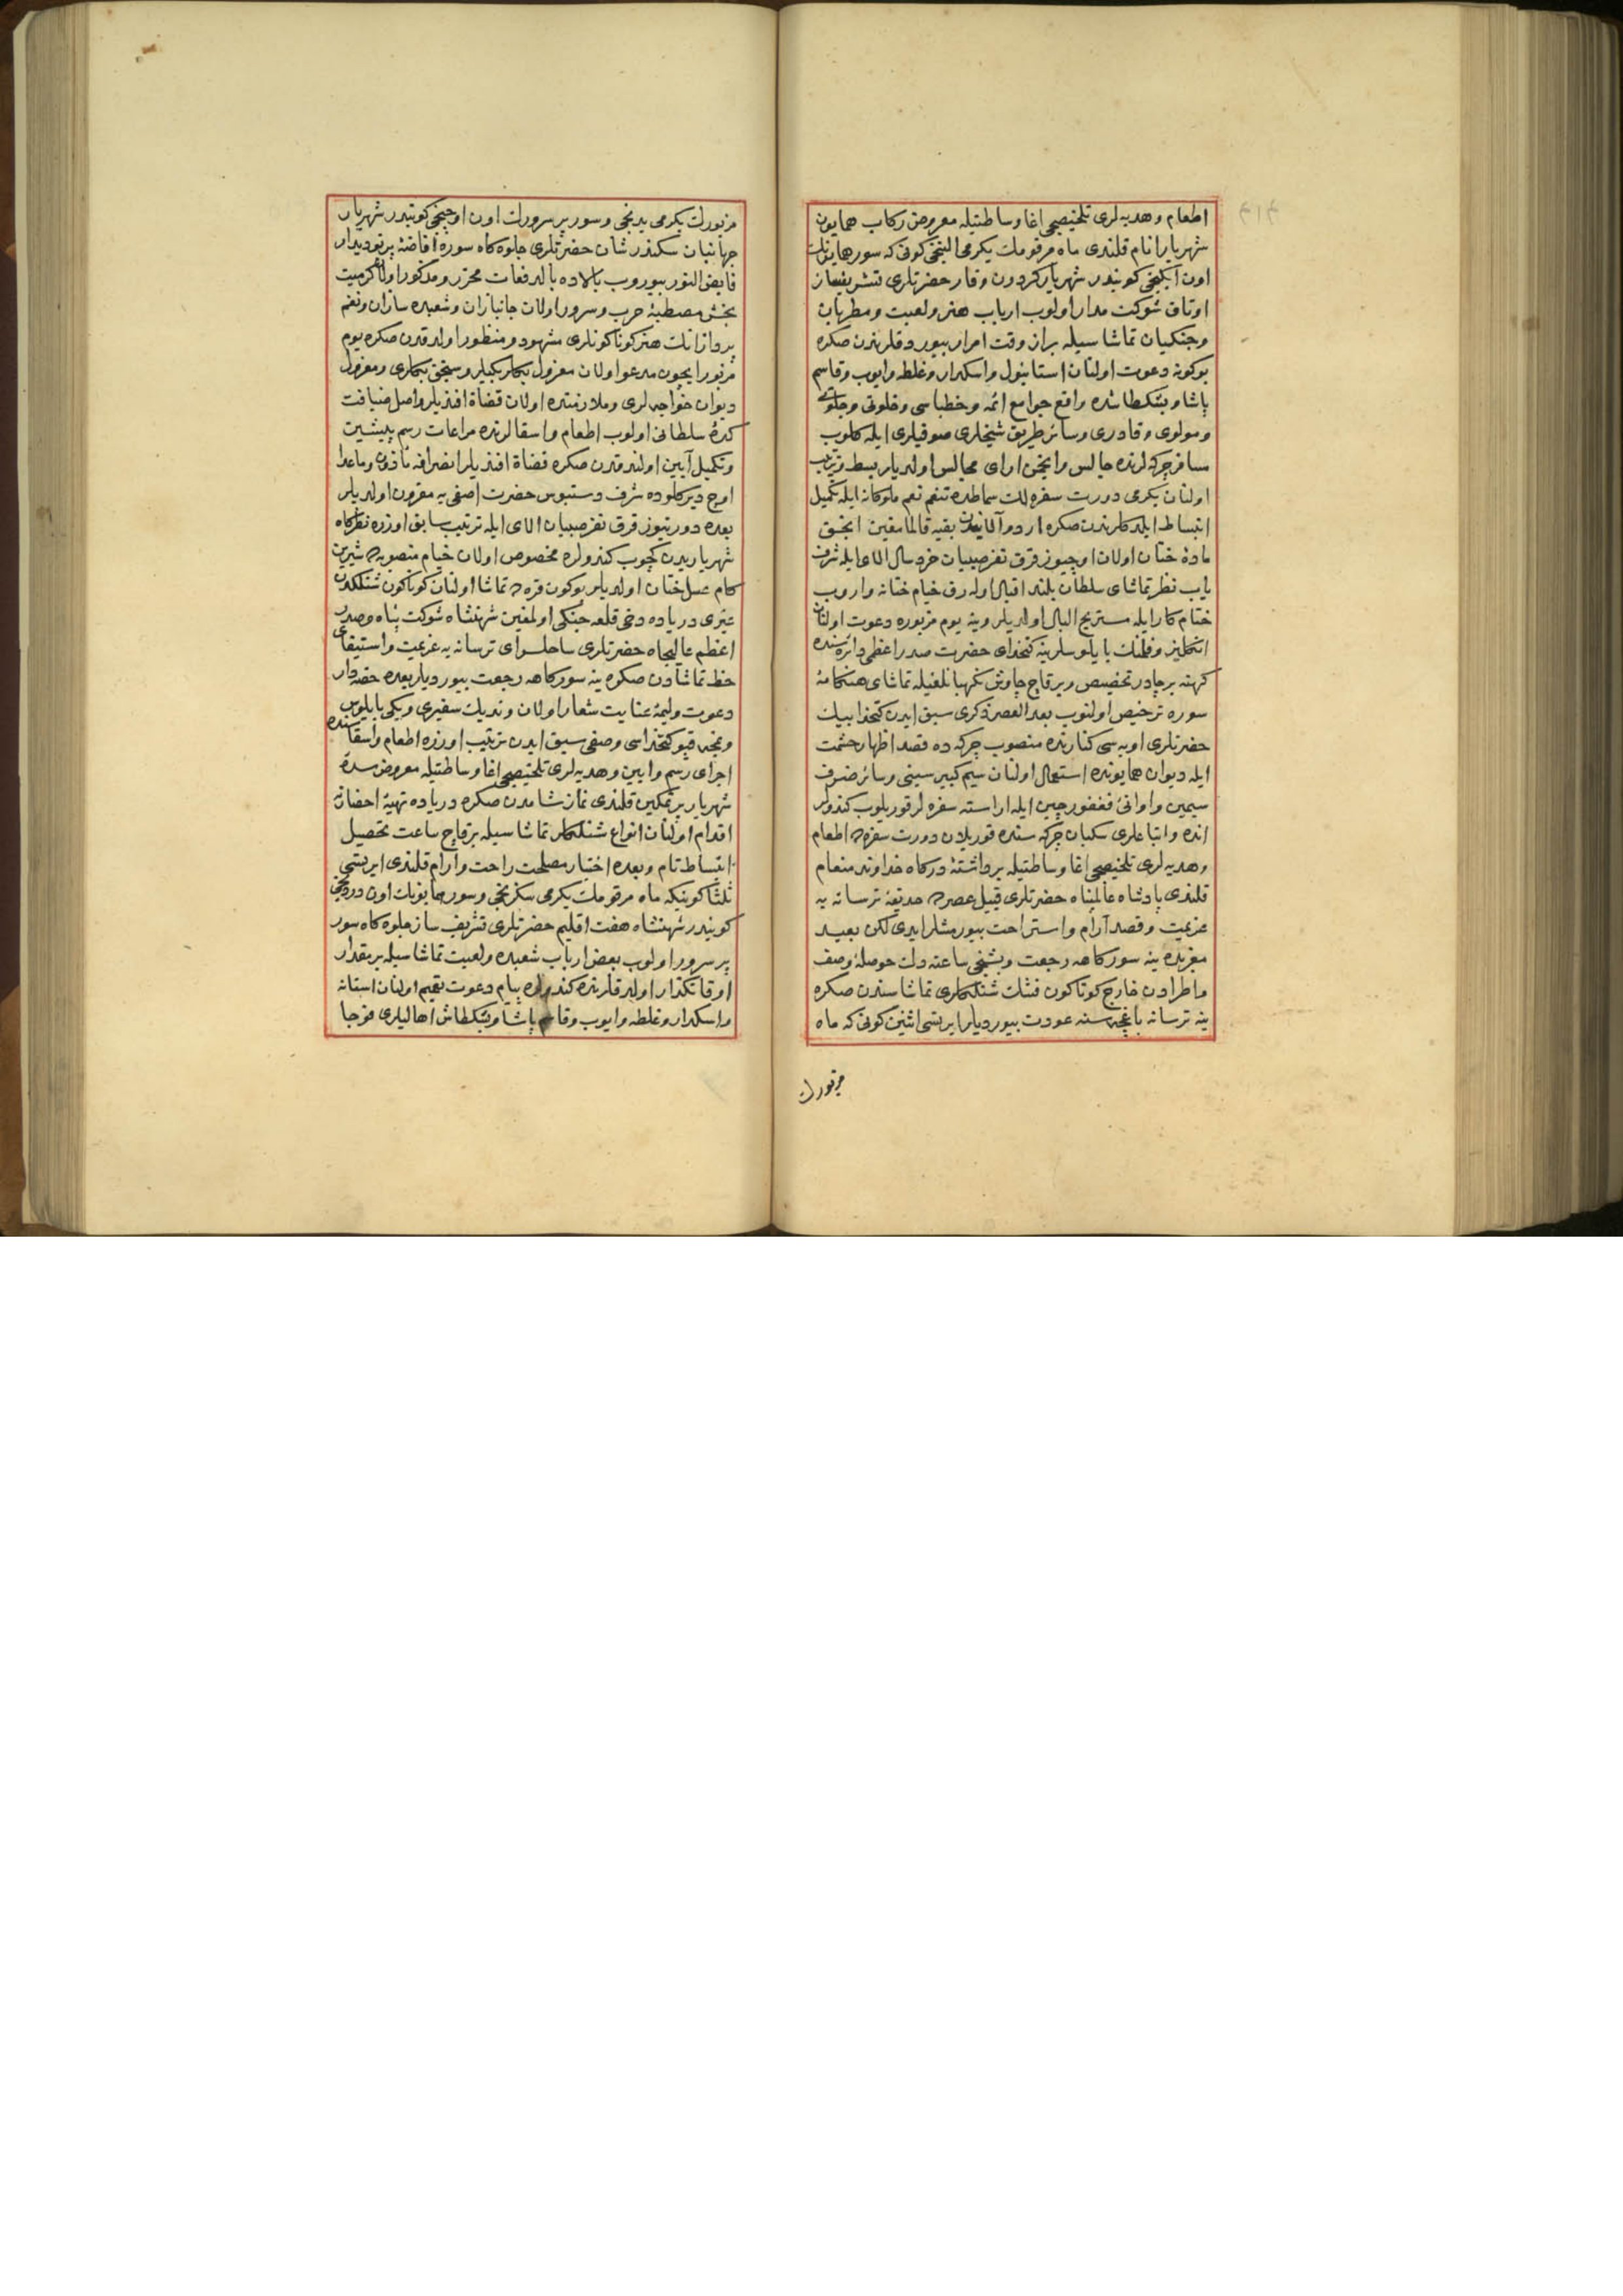 اطعام وهدیه لری تلخیصجی اغا وساطتیله معروض رکاب همایون
شهریار انام قلندی ماه مرقومك یکرمی التنجی کونی که سور همایونك
اون ایکنجی کونیدر شهریار کردون وقار حضرتلری تشریفساز
اوتاق شوکت مدار اولوب ارباب هنر ولعبیت ومطربان
وچنکیان تماشاسیله بر از وقت امرار بیوردقلرندن صکره
بوکونه دعوت اولنان استانبول واسکدار وغلطه وایوب وقاسم
پاشا وبشکطاشده واقع جوامع ائمه وخطباسی وخلوتی وجلوتی
ومولوی وقادری وسائر طریق شیخلری صوفیلری ایله کلوب
مسافر چرکه لرنده جالس وانجمن ارای مجالس اولدیلر بسط وترتیب
اولنان یکرمی دورت سفره لك سماطده تنعم نعم ملوکانه ایله تکمیل
انبساط ایلدکلرندن صکره اردو آلایندن بقیه قالمامغین انجق
ماده ختان اولان اوچیوز قرق نفر صبیان خردسال الای ایله شرف
یاب نظر تماشای سلطان بلند اقبال اوله رق خیام ختانه واروب
ختام کار ایله مستریح البال اولدیلر وینه یوم مزبوره دعوت اولنان
انکلیز وفلمنك بالیوسلرینه کتخدای حضرت صدر اعظمی دائره سنده
کهنه بر چادر تخصیص وبر قاچ چاوش نکهبانلغیله تماشای هنکامۀ
سوره ترخیص اولنوب بعد العصر ذکری سبق ایدن کتخدا بیك
حضرتلری اوبه سی کنارنده منصوب چرکه ده قصد اظهار حشمت
ایله دیوان همایونده استعمال اولنان سیم کبیر سینی وسائر ظروف
سیمین واوانئ فغفور چین ایله اراسته سفره لر قوریلوب کندولر
انده واتباعلری سکبان چرکه سنده قوریلان دورت سفره ده اطعام
وهدیه لری تلخیصجی اغا وساطتیله برداشتۀ درکاه خداوند منعام
قلندی پادشاه عالمپناه حضرتلری قبیل عصرده حدیقۀ ترسانه یه
عزیمت وقصد آرام واستراحت بیورمشلر ایدی لکن بعید
مغربده ینه سورکاهه رجعت وبشنجی ساعته دك حوصلۀ وصف
واطرادن خارج کوناکون فشنك شنلکلری تماشاسندن صکره
ینه ترسانه باغچه سنه عودت بیوردیلر ایرتسی اثنین کونی که ماه
مزبورك
مزبورك یکرمی یدنجی وسور پر سرورك اون اوچنجی کونیدر شهریار
جهانبان سکندر شان حضرتلری جلوه کاه سوره افاضۀ پرتو دیدار
فایض النور بیوروب بالاده بالدفعات محرر ومذکور اولان کرمیت
بخش مصطبۀ حرب وسرور اولان جانبازان وشعبده سازان ونغم
پردازانك هنر کوناکونلری مشهود ومنظور اولدقدن صکره یوم
مزبور ایچون مدعو اولان معزول بکلربکیلر وسنجق بکلری ومعزول
دیوان خواجه لری وملازمتده اولان قضاة افندیلر واصل ضیافت
کدۀ سلطانی اولوب اطعام واسقالرنده مراعات رسم پیشین
وتکمیل آیین اولندقدن صکره قضاة افندیلر انصرافه مأذون وماعدا
اوچ دیرکلوده شرف دستبوس حضرت اصفی یه مقرون اولدیلر
بعده دورتیوز قرق نفر صبیان الای ایله ترتیب سابق اوزره نظرکاه
شهریاریدن کچوب کندولره مخصوص اولان خیام منصوبه ده شیرین
کام عسل ختان اولدیلر بوکون قره ده تماشا اولنان کوناکون شنلکلدن
غیری دریاده دخی قلعه جنکی اولمغین شهنشاه شوکت پناه وصدر
اعظم عالیجاه حضرتلری ساحلسرای ترسانه یه عزیمت واستیفای
حظ تماشادن صکره ینه سورکاهه رجعت بیوردیلر بعده حصه دار
دعوت ولیمۀ عنایت شعار اولان وندیك سفیری ویکی بالیوس
ونمچه قپو کتخداسی وصفی سبق ایدن ترتیب اوزره اطعام واسقاسنده
اجرای رسم وایین وهدیه لری تلخیصجی اغا وساطتیله معروض سدۀ
شهریار پر تمکین قلندی نماز شامدن صکره دریاده تهیۀ احضارنه
اقدام اولنان انواع شنلکلر تماشاسیله بر قاچ ساعت تحصیل
انبساط تام وبعده اختیار مصلحت راحت وارام قلندی ایرتسی
ثلثا کونیکه ماه مرقومك یکرمی سکزنجی وسور همایونك اون دردنجی
کونیدر شهنشاه هفت اقلیم حضرتلری تشریف ساز جلوه کاه سور
پر سرور اولوب بعض ارباب شعبده ولعبیت تماشاسیله بر مقدار
اوقاتکذار اولدقلرنده کندولره پیام دعوت تعمیم اولنان استانه
واسکدار وغلطه وایوب وقاسم پاشا وبشکطاش اهالیلری فوجا